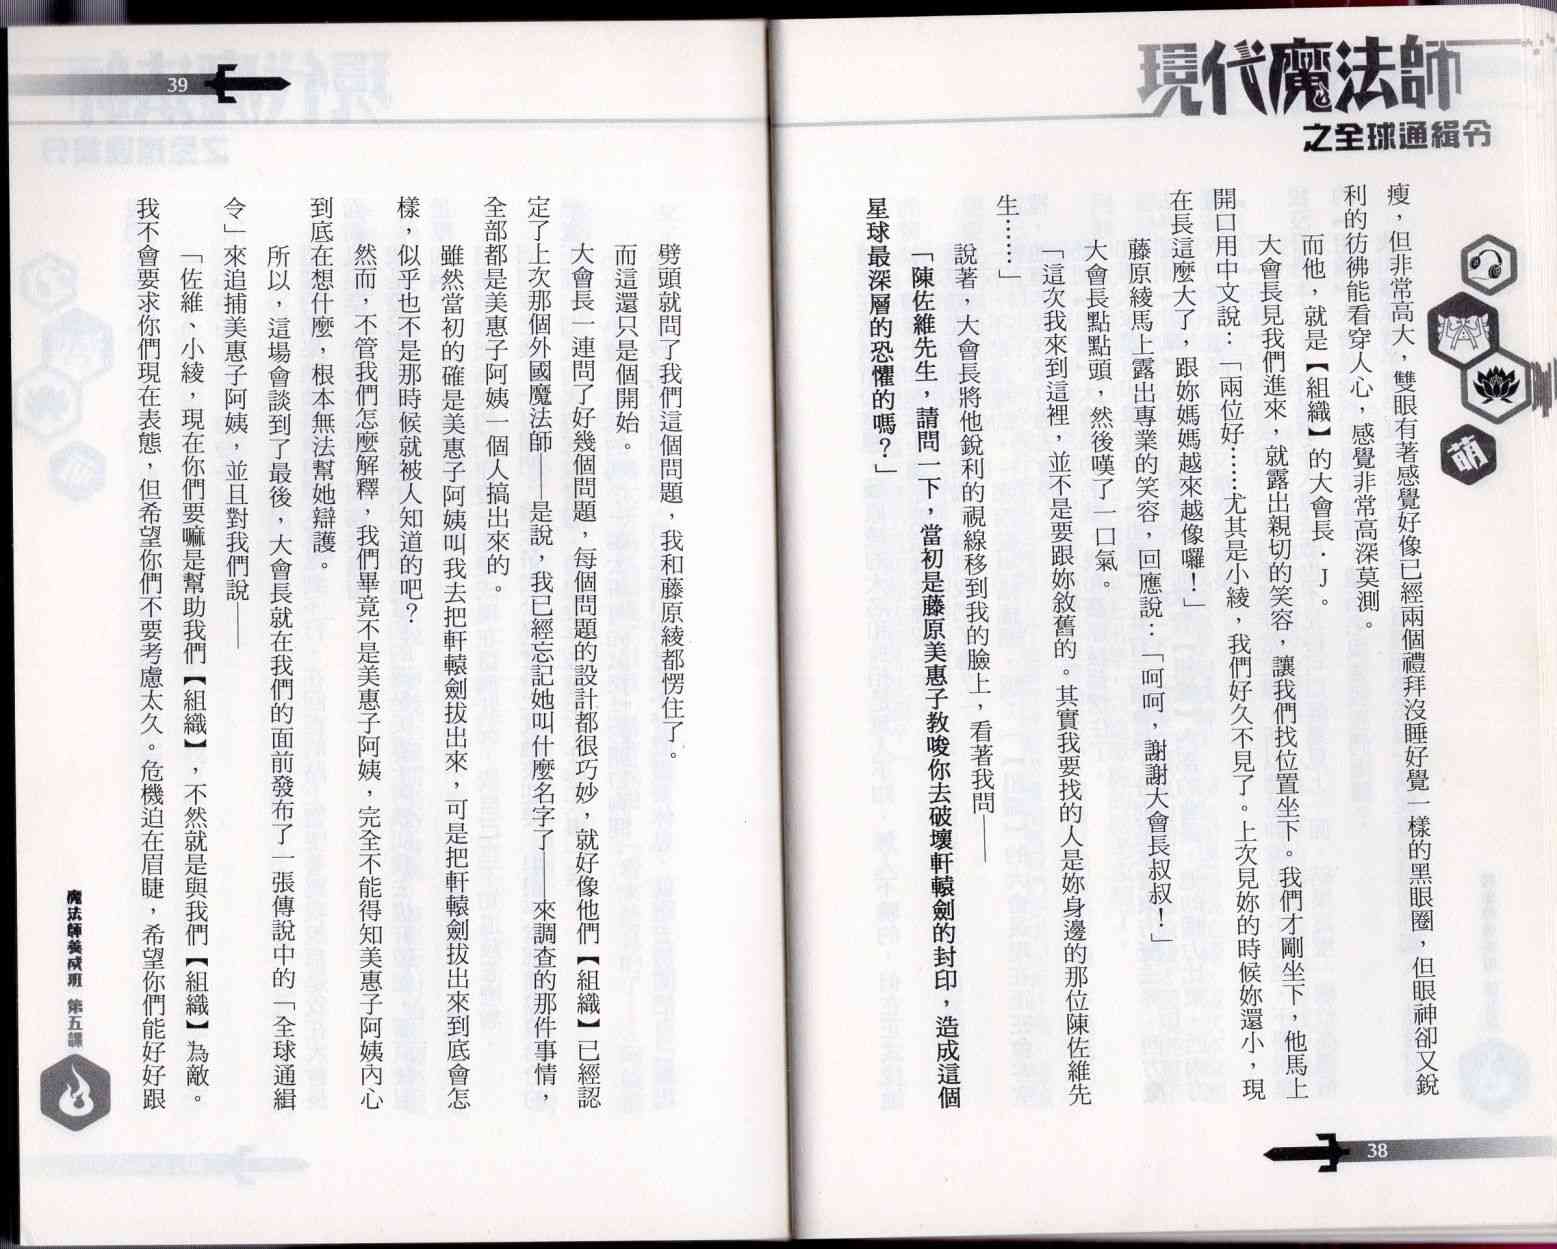 現代魔法師
之全球通緝令
萌
瘦，但非常高大，雙眼有著感覺好像已經兩個禮拜沒睡好覺一樣的黑眼圈，但眼神卻又銳
利的彷彿能看穿人心，感覺非常高深莫測。
而他，就是【組織】的大會長．J。
大會長見我們進來，就露出親切的笑容，讓我們找位置坐下。我們才剛坐下，他馬上
開口用中文說：「兩位好……尤其是小綾，我們好久不見了。上次見妳的時候妳還小，現
在長這麼大了，跟妳媽媽越來越像囉！」
藤原綾馬上露出專業的笑容，回應說：「呵呵，謝謝大會長叔叔！」
大會長點點頭，然後嘆了一口氣。
「這次我來到這裡，並不是要跟妳敘舊的。其實我要找的人是妳身邊的那位陳佐維先
生……」
說著，大會長將他銳利的視線移到我的臉上，看著我問——
「陳佐維先生，請問一下，當初是藤原美惠子教唆你去破壞軒轅劍的封印，造成這個
星球最深層的恐懼的嗎？」
38
39
劈頭就問了我們這個問題，我和藤原綾都愣住了。
而這還只是個開始。
大會長一連問了好幾個問題，每個問題的設計都很巧妙，就好像他們【組織】已經認
定了上次那個外國魔法師——是說，我已經忘記她叫什麼名字了——來調查的那件事情，
全部都是美惠子阿姨一個人搞出來的。
雖然當初的確是美惠子阿姨叫我去把軒轅劍拔出來，可是把軒轅劍拔出來到底會怎
樣，似乎也不是那時候就被人知道的吧？
然而，不管我們怎麼解釋，我們畢竟不是美惠子阿姨，完全不能得知美惠子阿姨內心
到底在想什麼，根本無法幫她辯護。
所以，這場會談到了最後，大會長就在我們的面前發布了一張傳說中的「全球通緝
令」來追捕美惠子阿姨，並且對我們說——
「佐維、小綾，現在你們要嘛是幫助我們【組織】，不然就是與我們【組織】為敵。
我不會要求你們現在表態，但希望你們不要考慮太久。危機迫在眉睫，希望你們能好好跟
魔法師養成班 第五課